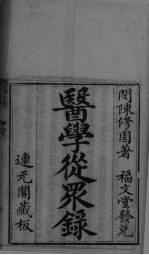 閩陳修園著
福文堂發兌
醫學從眾錄
連元閣藏板